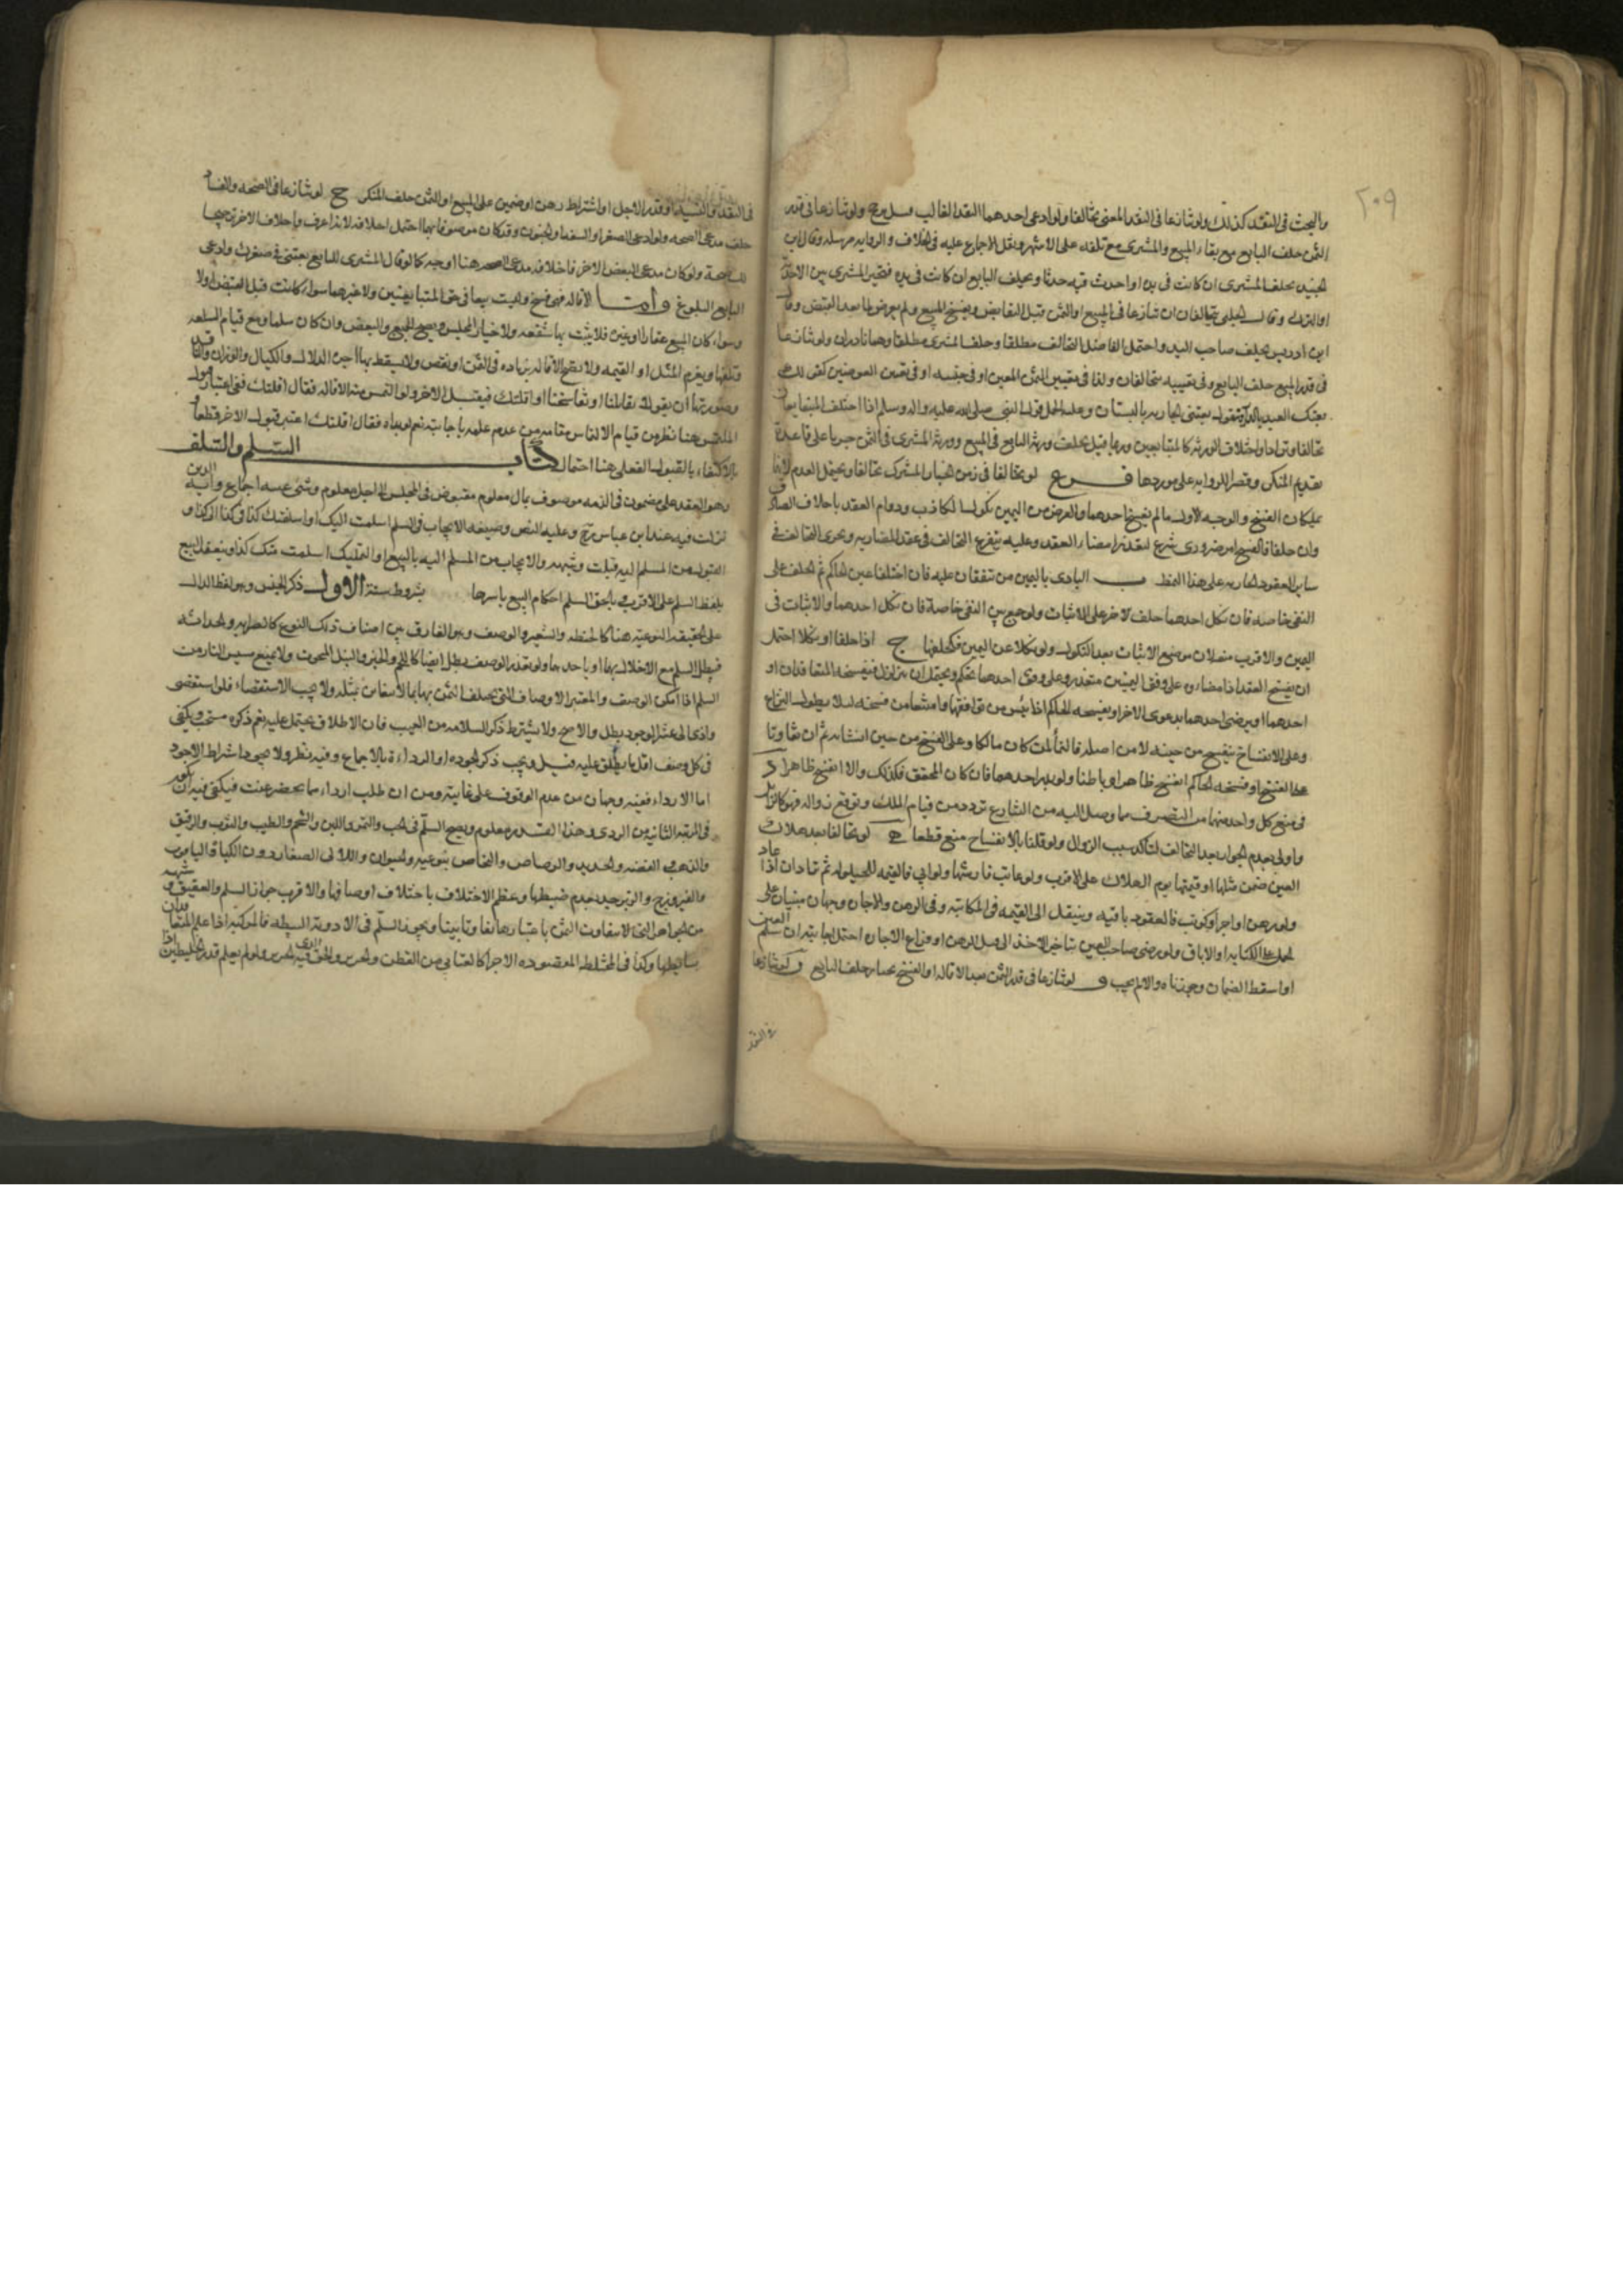 ٢٠٩
والبحث في النقد كذلك ولو تنازعا في النقد المعين تحالفا ولو ادعى احدهما النقد الغالب رجح ولو تنازعا في قدر
الثمن حلف البايع مع بقاء المبيع والمشتري مع تلفه على الاشهر ونقل الاجماع عليه في الخلاف والرواية مرسلة وقال ابن
الجنيد يحلف المشتري ان كانت في يده او احدث فيه حدثا ويحلف البايع ان كانت في يده فيتخير المشتري بين الاخذ
او الترك وقال الحلبي يتحالفان ان تنازعا في المبيع او الثمن وقبل التقابض ويفسخ المبيع ولم يعرض لما بعد القبض وقال
ابن ادريس يحلف صاحب اليد واحتمل الفاضل التحالف مطلقا وحلف المشتري مطلقا وهما نادران ولو تنازعا
في قدر المبيع حلف البايع وفي تعيينه يتحالفان وكذا في تعيين الثمن المعين او في جنسه او في تعيين العوضين كقوله
بعتك العبد بالدار فيقول بعتني الجارية بالبستان وعليه الحمل قول النبي صلى الله عليه واله وسلم اذا اختلف المتبايعان
تحالفا وترادا واختلاف الورثة كالمتبايعين وربما قيل يحلف ورثة البايع في المبيع وورثة المشتري في الثمن جريا على قاعدة
تقديم المنكر وقصر الرواية على موردها فرع لو تحالفا في زمن الخيار المشترك تحالفا ويحتمل العدم لانهما
يملكان الفسخ والوجه الاول ما لم يفسخ احدهما والغرض من اليمين نكول الكاذب ودوام العقد باحلاف الصادق
وان حلفا فالفسخ امر ضروري شرع لتعذر امضاء العقد وعليه يتفرع التحالف في عقد المضاربة ويجري التحالف في
ساير العقود الجارية على هذا النمط ب البادي باليمين من يتفقان عليه فان اختلفا عين الحاكم ثم الحلف على
النفي خاصة فان نكل احدهما حلف الاخر على الاثبات ولو جمع بين النفي خاصة فان نكل احدهما والاثبات في
اليمين والاقرب منعه لان موضع الاثبات بعد النكول ولو نكلا عن اليمين فكحلفهما ج اذا حلفا او نكلا احتمل
ان ينفسخ العقد اذ امضاؤه على وفق اليمينين متعذر وعلى وفق احدهما تحكم ويحتمل ان يتزلزل فيفسخه المتعاقدان او
احدهما او يرضى احدهما بدعوى الاخر او يفسخه الحاكم اذا يئس من توافقهما وامتنعا من فسخه لئلا يطول النزاع
وعلى الانفساخ ينفسخ من حينه لا من اصله فالنماء لمن كان مالكا وعلى الفسخ من حين انشائه ثم ان تقاوتا
على الفسخ او فسخه الحاكم انفسخ ظاهرا وباطنا ولو بدر احدهما فان كان المحق فكذلك والا انفسخ ظاهرا د
في منع كل واحد منهما من التصرف مما وصل اليه من الشارع تردد من قيام الملك وتوقع زواله فهو كالزايل
واولى بعدم الجواز بعد التحالف لتاكد سبب الزوال ولو قلنا بالانفساخ منع قطعا ه لو تحالفا بعد هلاك
العين ضمن مثلها او قيمتها يوم الهلاك على الاقرب ولو عابت فارشها ولو ابق فالقيمة للحيلولة ثم ترادان اذا عاد
ولو رهن او اجر او كوتب فالعقود باقية وينتقل الى القيمة في المكاتبة وفي الرهن والاجارة وجهان مبنيان على
الحمل على الكتابة او الاباق ولو رضي صاحب العين بتاخير الاخذ الى فك الرهن او فراغ الاجارة احتمل اجابته ان تسلم العين
او اسقط الضمان وجوزناه والا لم يجب و لو تنازعا في قدر الثمن بعد الاقالة او الفسخ بخيار حلف البايع ز لو تنازعا
في النقد
في النقد والنسية او قدر الاجل او اشتراط رهن او ضمين على المبيع او الثمن حلف المنكر ح لو تنازعا في الصحة والفساد
حلف مدعي الصحة ولو ادعى الصغر او السفه او الجنون وقد كان موصوفا بهما احتمل احلافه لانه اعرف واحلاف الاخر ترجيحا
للصحة ولو كان مدعي البعض الاخر فاحلاف مدعي الصحة هنا اوجه كما لو قال المشتري للبايع بعتني في صغرك وادعى
البايع البلوغ وامـا الاقالة فهي فسخ وليست بيعا في حق المتبايعين ولا غيرهما سواء كانت قبل القبض او لا
وسواء كان المبيع عقارا او غيره فلا يثبت بها شفعة ولا خيار المجلس ويصح في الجميع والبعض وان كان سلما ومع قيام السلعة
وتلفها ويغرم المثل او القيمة ولا تصح الاقالة بزيادة في الثمن او نقص ولا يسقط بها اجرة الدلال والكيال والوزان والناقد
وصورتها ان يقولا تقايلنا او تفاسخنا او اقلتك فيقبل الاخر ولو التمس منه الاقالة فقال اقلتك ففي اعتبار قبول
الملتمس هنا نظر من قيام الالتماس مقامه ومن عدم علمه باجابته نعم لو بداه فقال اقلتك اعتبر قبول الاخر قطعا و
بالاكتفاء بالقبول الفعلي هنا احتمال كتاب السلم والسلف
وهو العقد على مضمون في الذمة موصوف بمال معلوم مقبوض في المجلس الى اجل معلوم وشرعيته اجماع واية الدين
نزلت فيه عند ابن عباس رضي وعليه النص وصيغة الايجاب في السلم اسلمت اليك او اسلفتك كذا في كذا الى كذا و
القبول من المسلم اليه قبلت وشبهه والايجاب من المسلم اليه بالبيع او التمليك استلمت منك كذا وينعقد البيع
بلفظ السلم على الاقرب ويلحق السلم احكام البيع باسرها بشروط ستة الاول ذكر الجنس وهو اللفظ الدال
على الحقيقة النوعية هنا كالحنطة والشعير والوصف وهو الفارق بين اصناف ذلك النوع كالصرابة والحداثة
فيبطل السلم مع الاخلال بهما او باحدهما ولو تعذر الوصف بطل ايضا كاللحم والخبز والنبل المنحوت ولا يمنع مسيس النار من
السلم اذا امكن الوصف والمعتبر الاوصاف التي يختلف الثمن بها بما لا يتغابن بمثله ولا يجب الاستقصاء فلو استقصى
وادى الى عسر الوجود بطل والا صح ولا يشترط ذكر السلامة من العيب فان الاطلاق يحتمل عليه نعم ذكره مستحب ويكفي
في كل وصف اقل ما يطلق عليه قيل ويجب ذكر الجودة او الرداءة بالاجماع وفيه نظر ولا يجوز اشتراط الاجود
اما الارداء ففيه وجهان من عدم الوقوف على غايته ومن ان طلب ارداء مما يحضر عنت فيكفي فيه ان يكون
في المرتبة الثانية من الردي وهذا القدر معلوم ويصح السلم في الحب والتمر واللبن والشحم والطيب والثوب والرقيق
والذهب والفضة والحديد والرصاص والنحاس بنوعيه والحيوان واللالي الصغار دون الكبار واليواقيت
والفيروزج والزبرجد لعدم ضبطها وعظم الاختلاف باختلاف اوصافها والاقرب جواز السلم والعقيق وشبهه
من الجواهر التي لا يتفاوت الثمن باعتبارها تفاوتا بينا ويجوز السلم في الادوية البسيطة فالمركبة اذا علم المتعاقدان
بسايطها وكذا في المختلط المقصودة الاجزاء كالعتابي من القطن والحرير والخز فيه الحرير ولو لم يعلم قدر الخليطين اذا